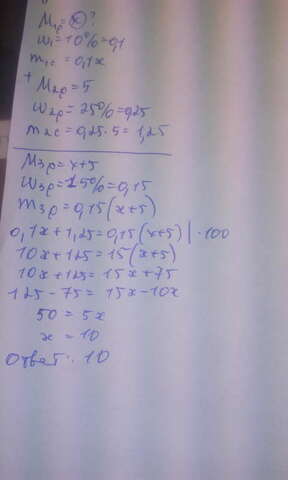 M1p = x ?
w1 = 10% = 0,1
m1c = 0,1x
+ M2p = 5
w2p = 25% = 0,25
m2c = 0,25 · 5 = 1,25
M3p = x+5
w3p = 15% = 0,15
m3p = 0,15(x+5)
0,1x+1,25 = 0,15(x+5) | · 100
10x+125 = 15(x+5)
10x+125 = 15x+75
125-75 = 15x-10x
50 = 5x
x = 10
Ответ: 10